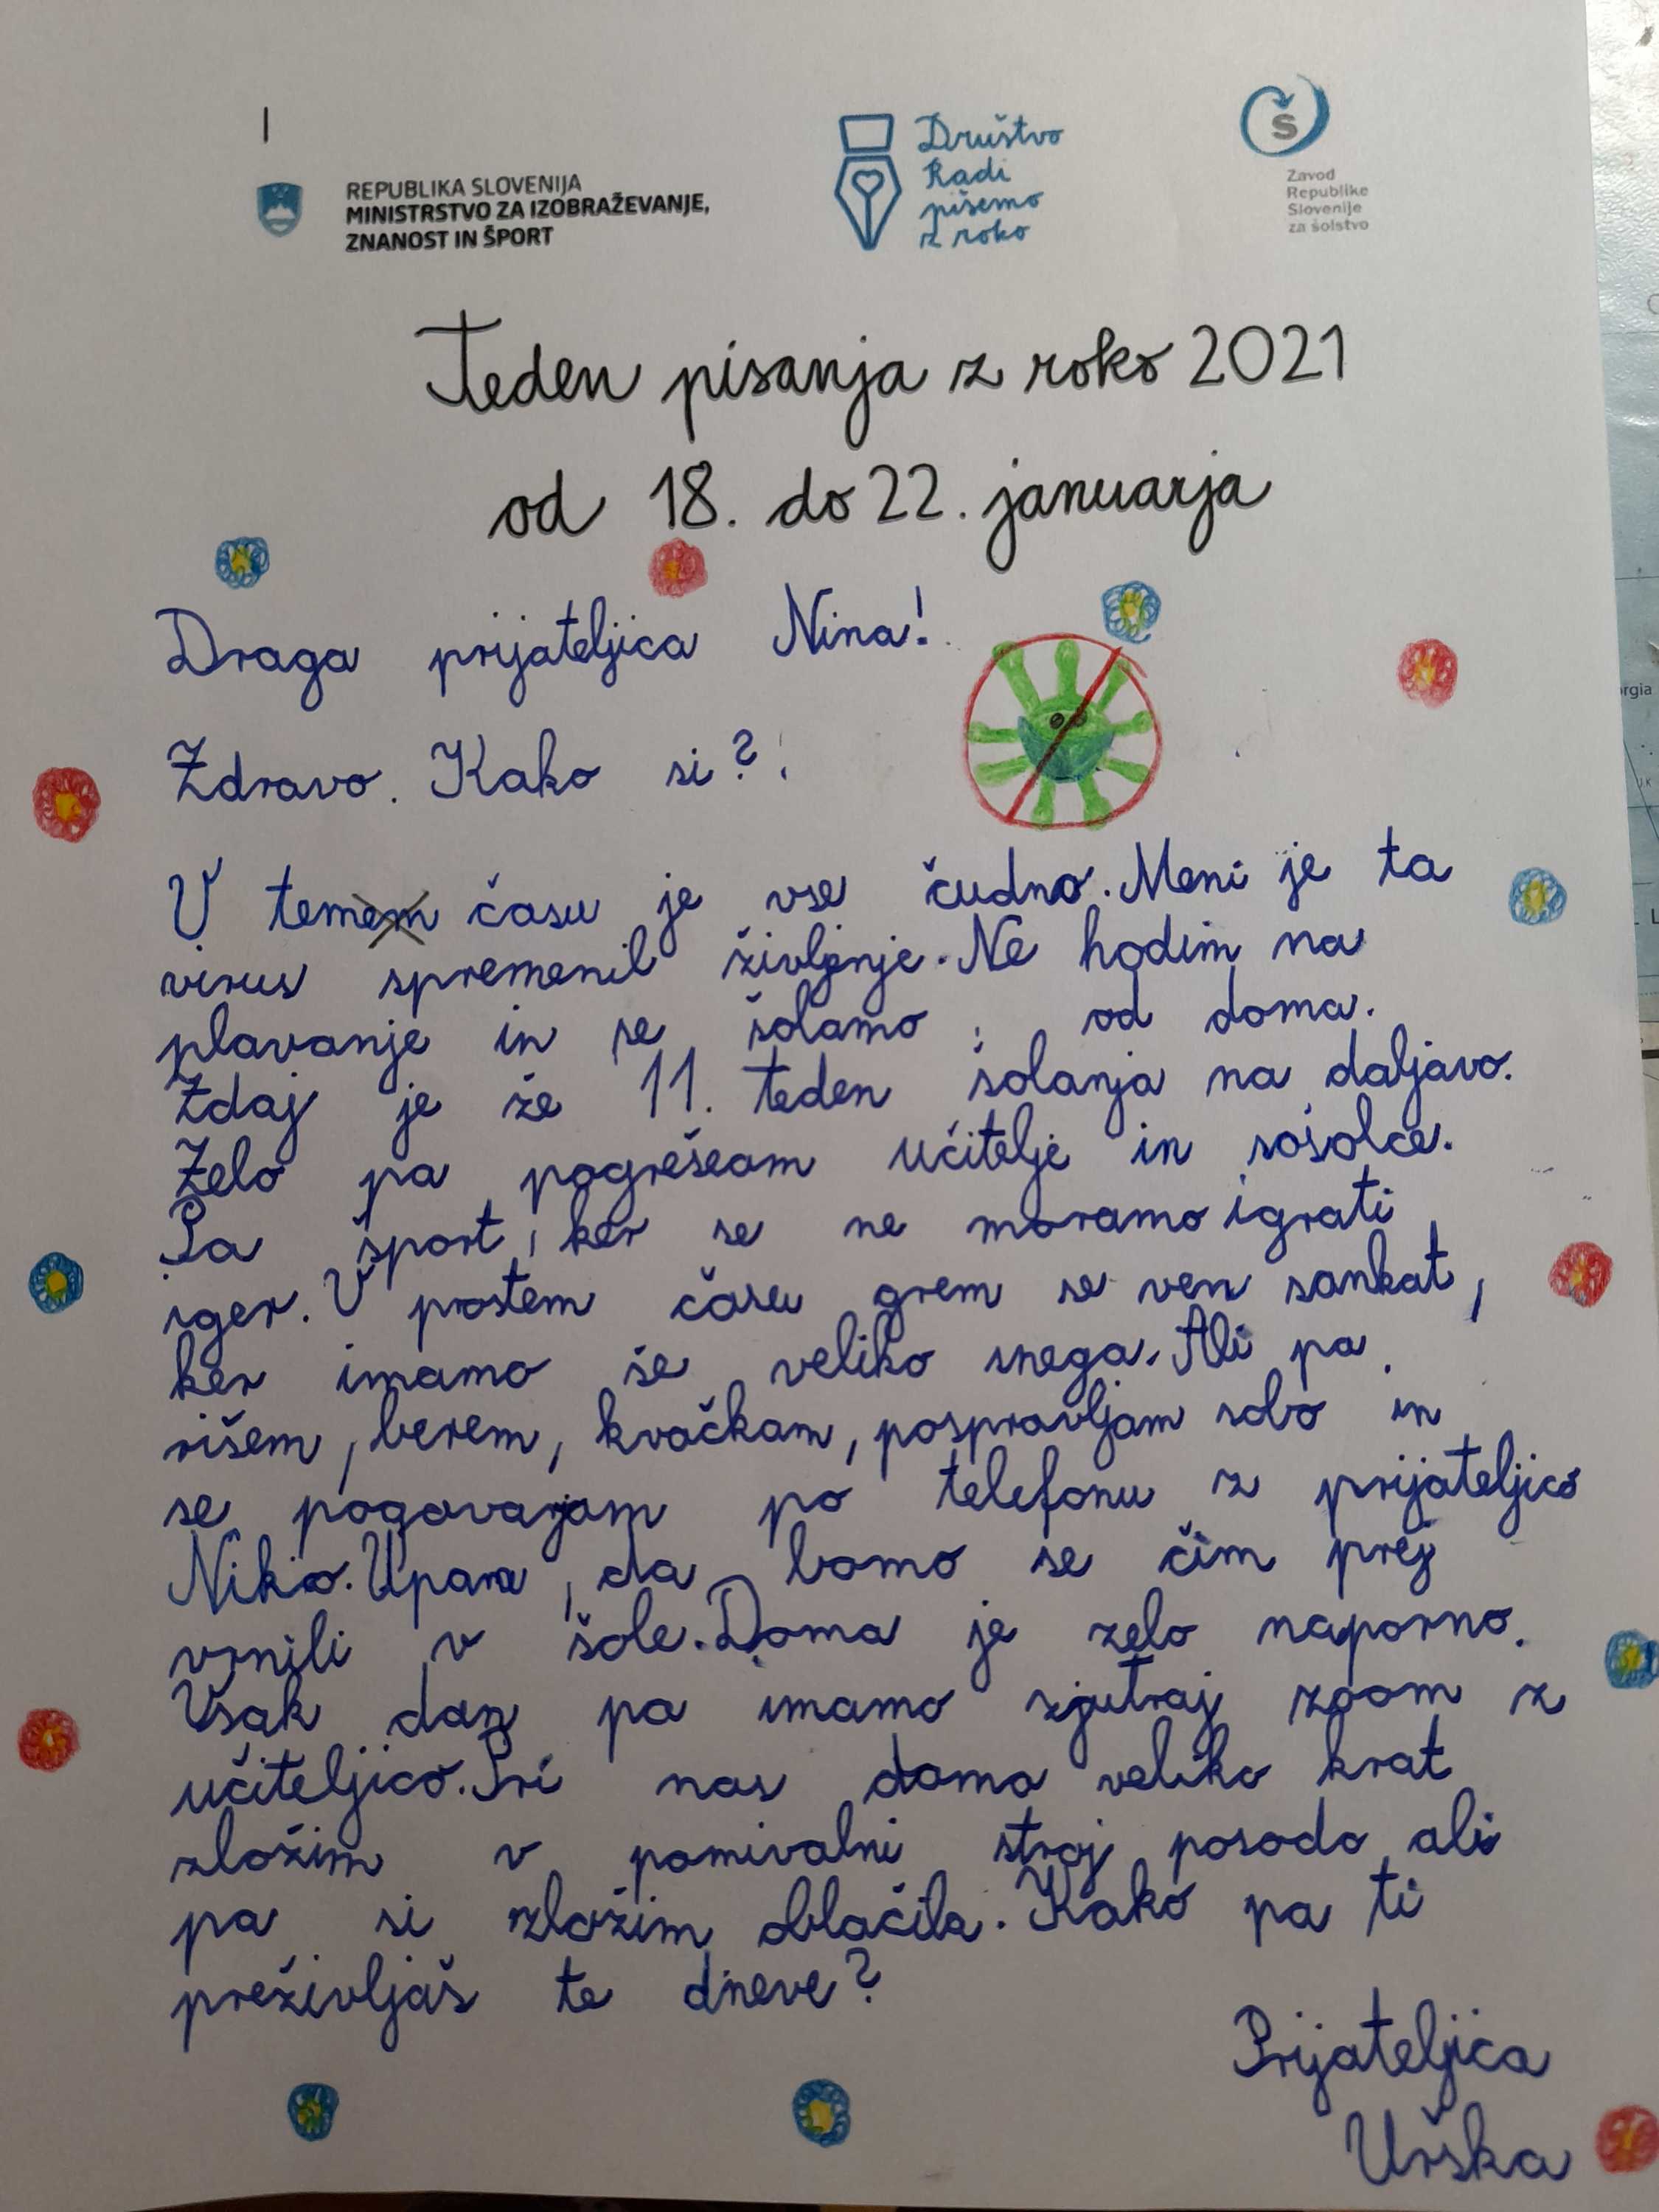 REPUBLIKA SLOVENIJA
MINISTRSTVO ZA IZOBRAŽEVANJE,
ZNANOST IN ŠPORT
Društvo
Radi
pišemo
z roko
Š
Zavod
Republike
Slovenije
za šolstvo
Teden pisanja z roko 2021
od 18. do 22. januarja
Draga prijateljica Nina!
Zdravo. Kako si?
V tem času je vse čudno. Meni je ta
virus spremenil življenje. Ne hodim na
plavanje in se šolamo od doma.
Zdaj je že 11. teden šolanja na daljavo.
Zelo pa pogrešam učitelje in sošolce.
Pa šport, ker se ne moramo igrati
iger. V prostem času grem se ven sankat,
ker imamo še veliko snega. Ali pa
rišem, berem, kvačkam, pospravljam sobo in
se pogovarjam po telefonu z prijateljico
Niko. Upam, da bomo se čim prej
vrnili v šole. Doma je zelo naporno.
Vsak dan pa imamo zjutraj zoom z
učiteljico. Pri nas doma veliko krat
zložim v pomivalni stroj posodo ali
pa si zložim oblačila. Kako pa ti
preživljaš te dneve?
Prijateljica
Urška
rgia